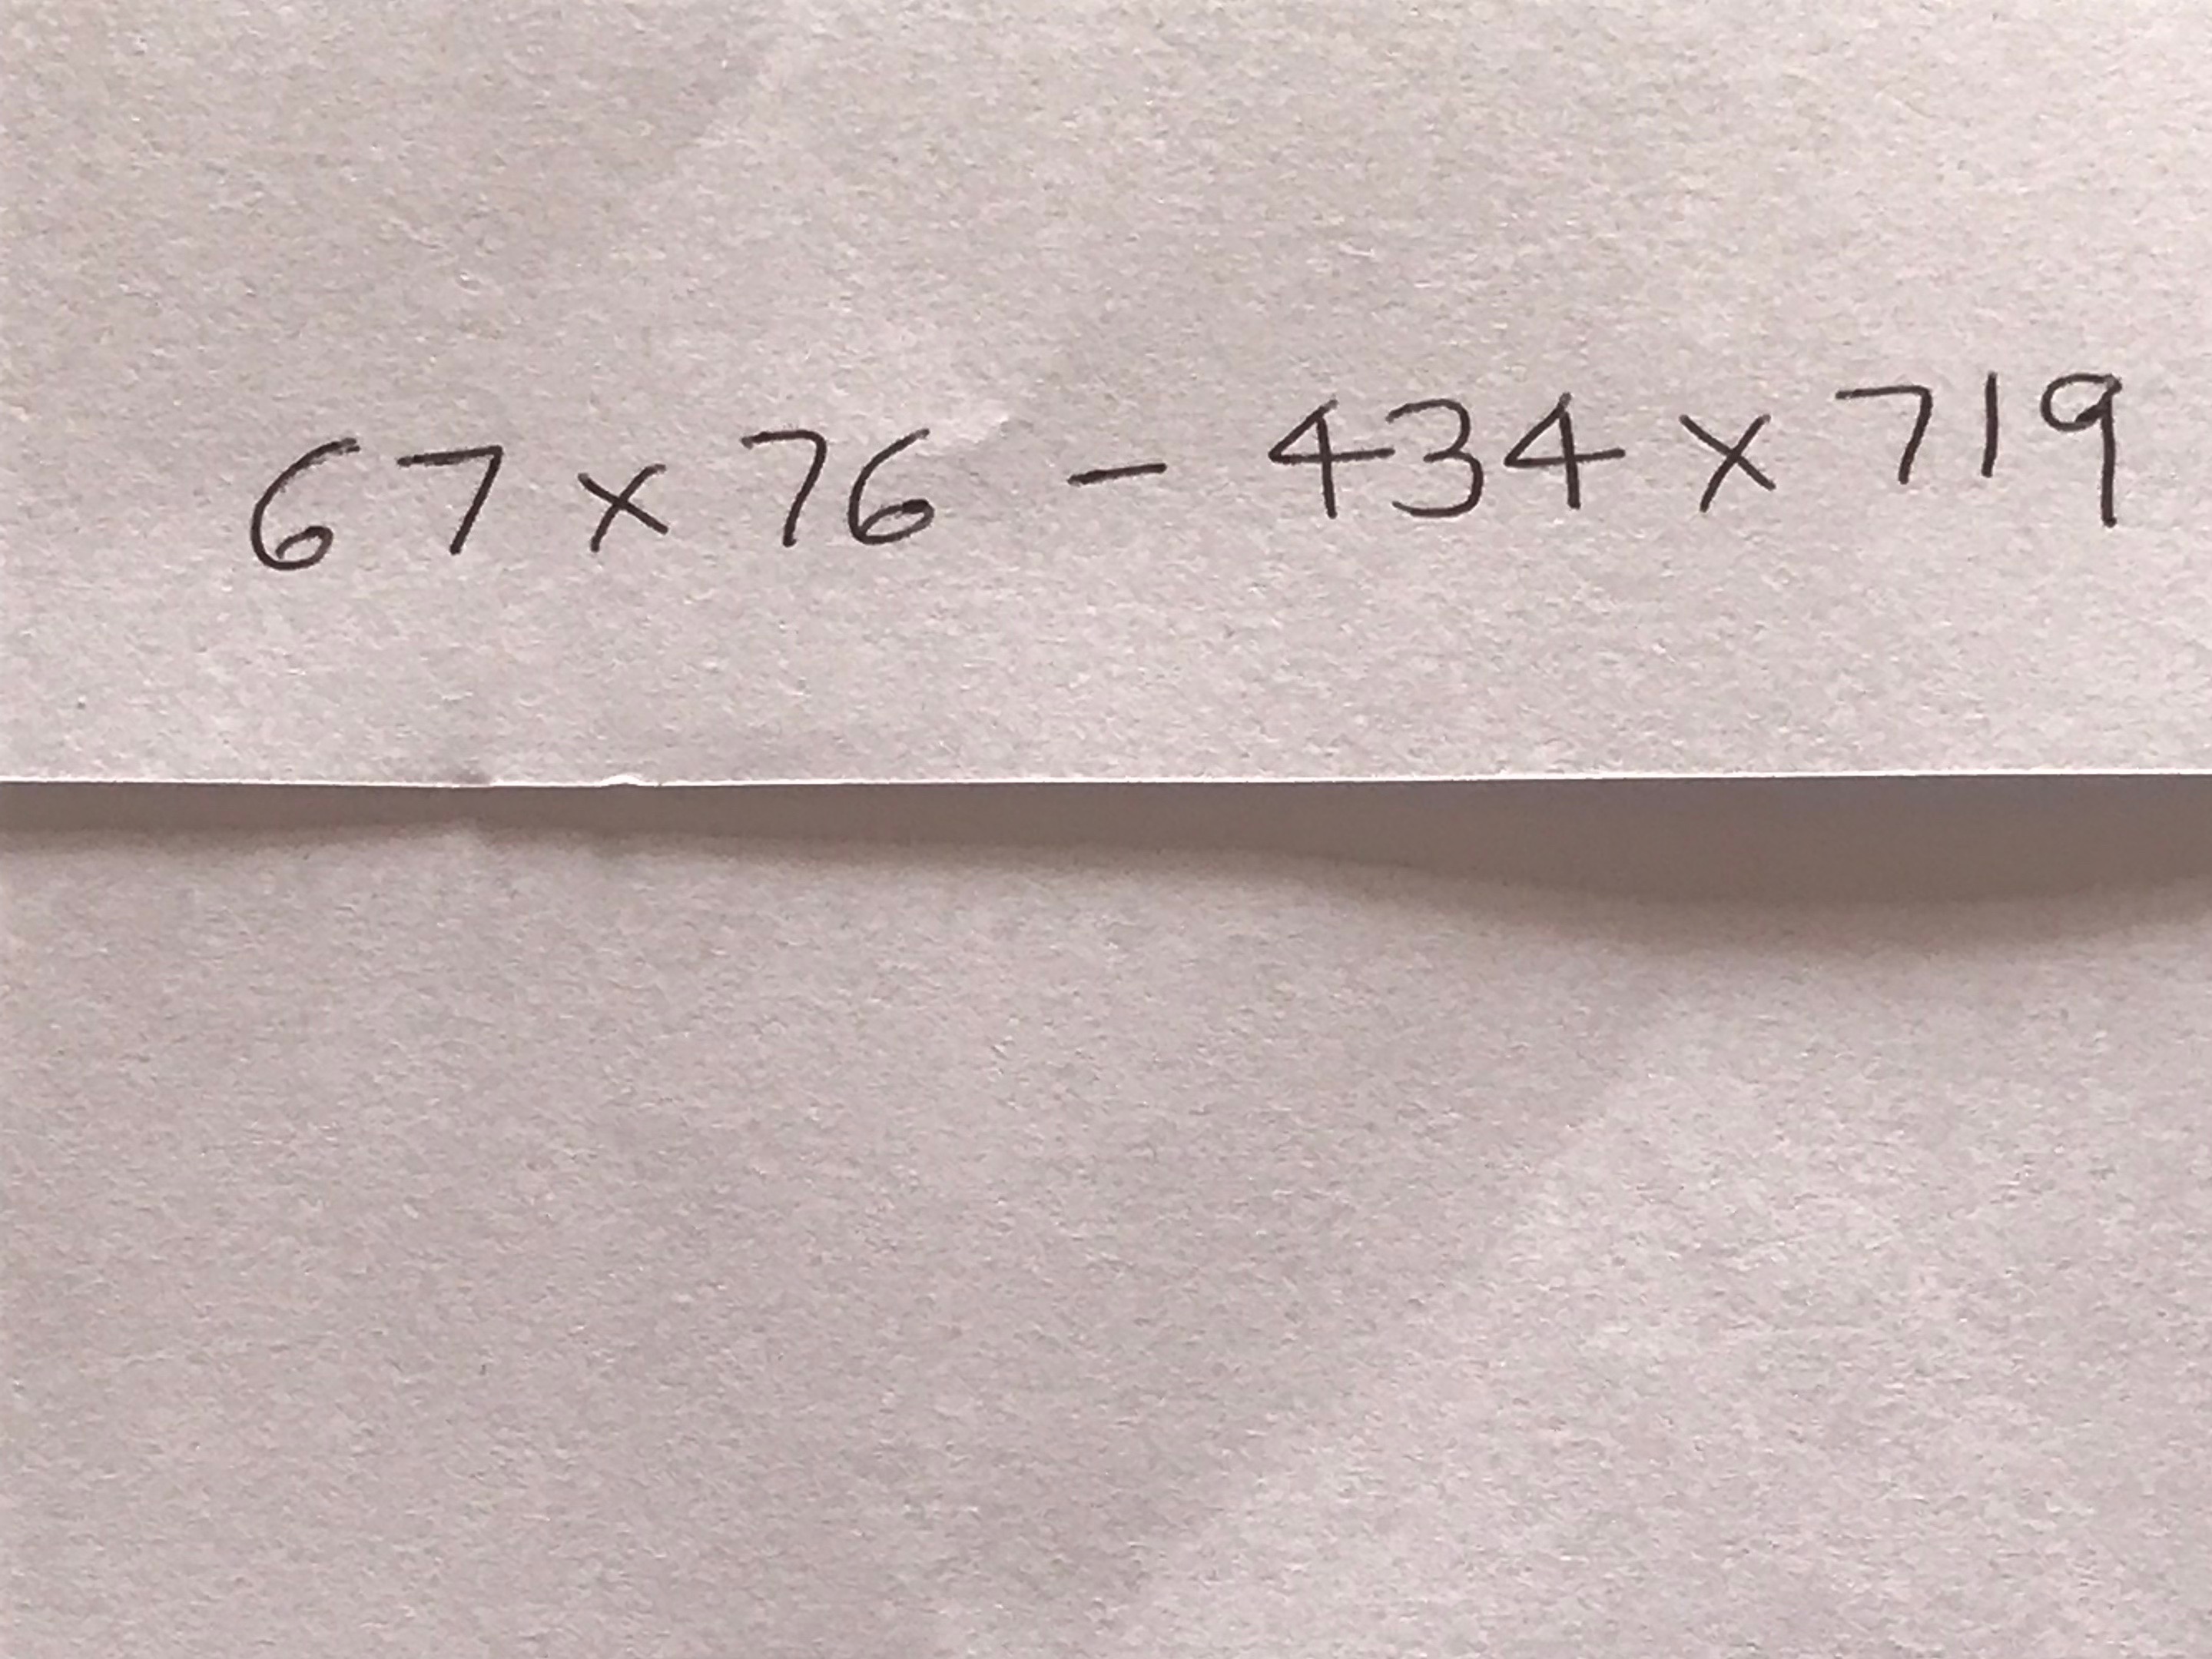 67 × 76 - 434 × 719